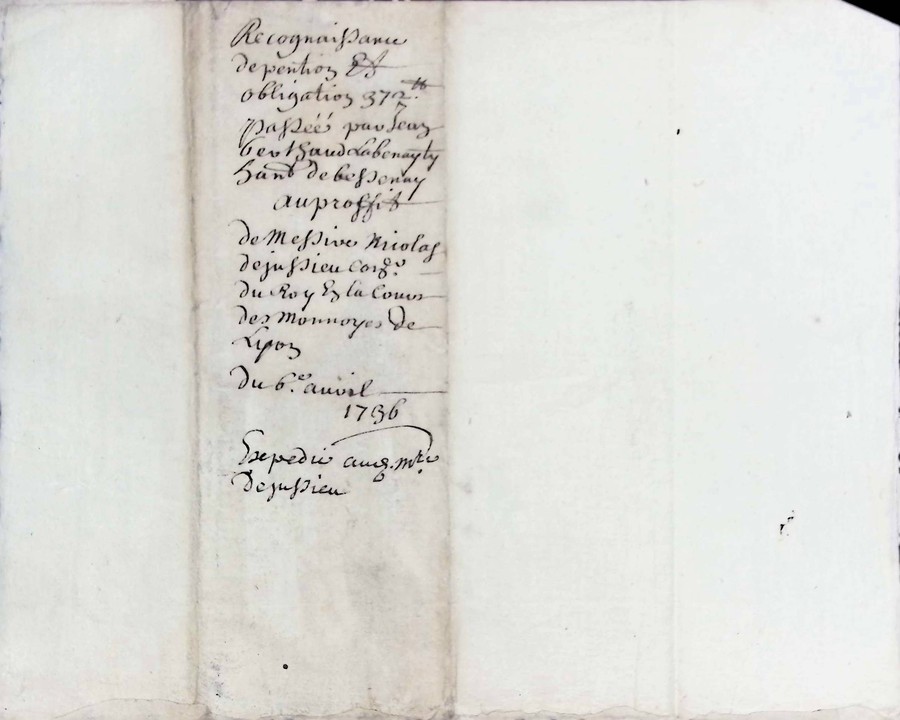 Recognaissance
de pention Et
obligation 372ᵗᵗ
passéé par Jean
berthaud Labenayty
habᵗ de bessenay
au proffit
de Messire Nicolas
dejussieu conᵉʳ
du Roy En la Cour
des Monnoyes de
Lyon
du 6.ᵉ auril
1736
Expedié aud. mʳᵉ
dejussieu